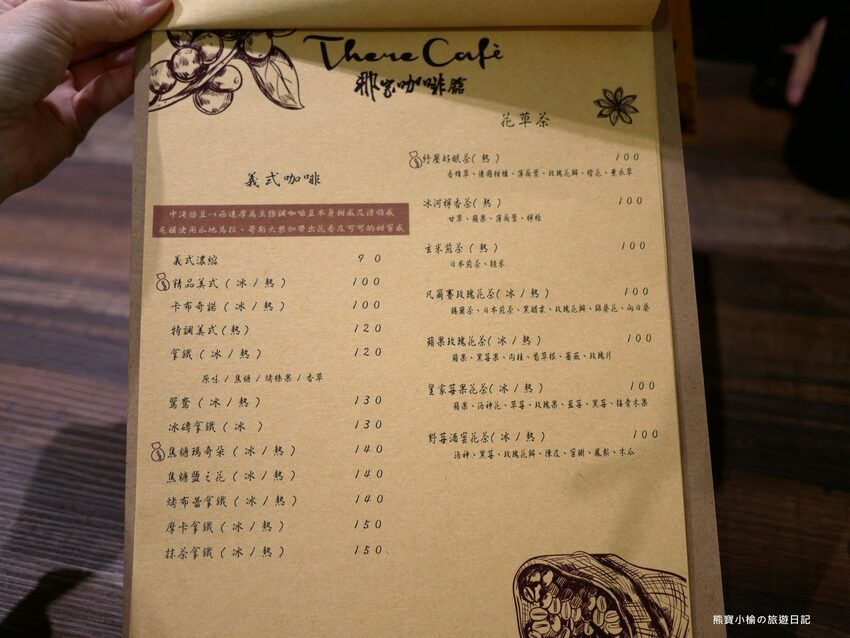 There Cafè
那家咖啡館
義式咖啡
中淺焙豆以西達摩為主強調咖啡豆本身甜感及清順感
尾韻使用瓜地馬拉、哥斯大黎加帶出花香及可可的甜蜜感
義式濃縮 90
精品美式(冰/熱) 100
卡布奇諾(冰/熱) 100
特調美式(熱) 120
拿鐵(冰/熱) 120
原味/焦糖/烤榛果/香草
鴛鴦(冰/熱) 130
冰磚拿鐵(冰) 130
焦糖瑪奇朵(冰/熱) 140
焦糖鹽之花(冰/熱) 140
烤布蕾拿鐵(冰/熱) 140
摩卡拿鐵(冰/熱) 150
抹茶拿鐵(冰/熱) 150
花草茶
紓壓好眠茶(熱) 100
香蜂草、德國柑橘、薄荷葉、玫瑰花瓣、橙花、薰衣草
冰河檸香茶(熱) 100
甘草、蘋果、薄荷葉、檸檬
玄米煎茶(熱) 100
日本煎茶、糙米
凡爾賽玫瑰花茶(冰/熱) 100
錫蘭茶、日本煎茶、黑醋栗、玫瑰花瓣、錦葵花、向日葵
蘋果玫瑰花茶(冰/熱) 100
蘋果、黑莓果、肉桂、葡萄糖、薔薇、玫瑰片
皇家莓果花茶(冰/熱) 100
蘋果、洛神花、草莓、玫瑰果、藍莓、黑莓、接骨木果
野莓酒蜜花茶(冰/熱) 100
洛神、黑莓、玫瑰花瓣、陳皮、蜜樹、鳳梨、木瓜
熊寶小榆の旅遊日記